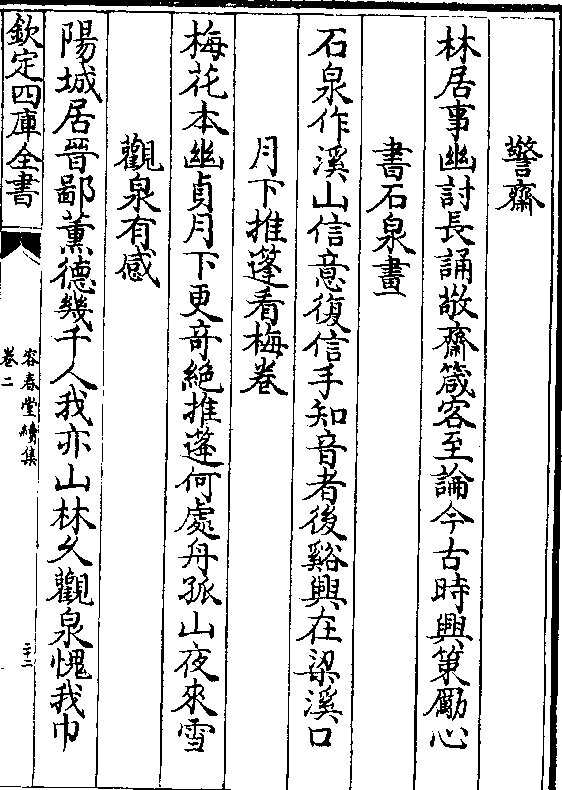 警齋
林居事幽討長誦敬齋箴客至論今古時興策勵心
書石泉畫
石泉作溪山信意復信手知音者後谿興在梁溪口
月下推蓬看梅卷
梅花本幽貞月下更竒絕推蓬何處舟孤山夜來雪
觀泉有感
陽城居晉鄙薰德幾千人我亦山林久觀泉愧我巾
欽定四庫全書
容春堂續集
卷二
二十二